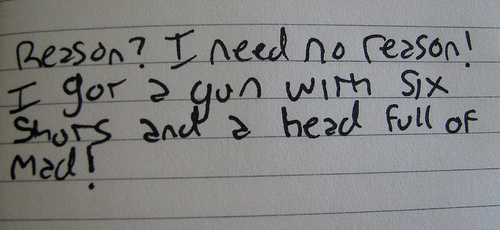 Reason? I need no reason!
I got a gun with six
shots and a head full of
mad!